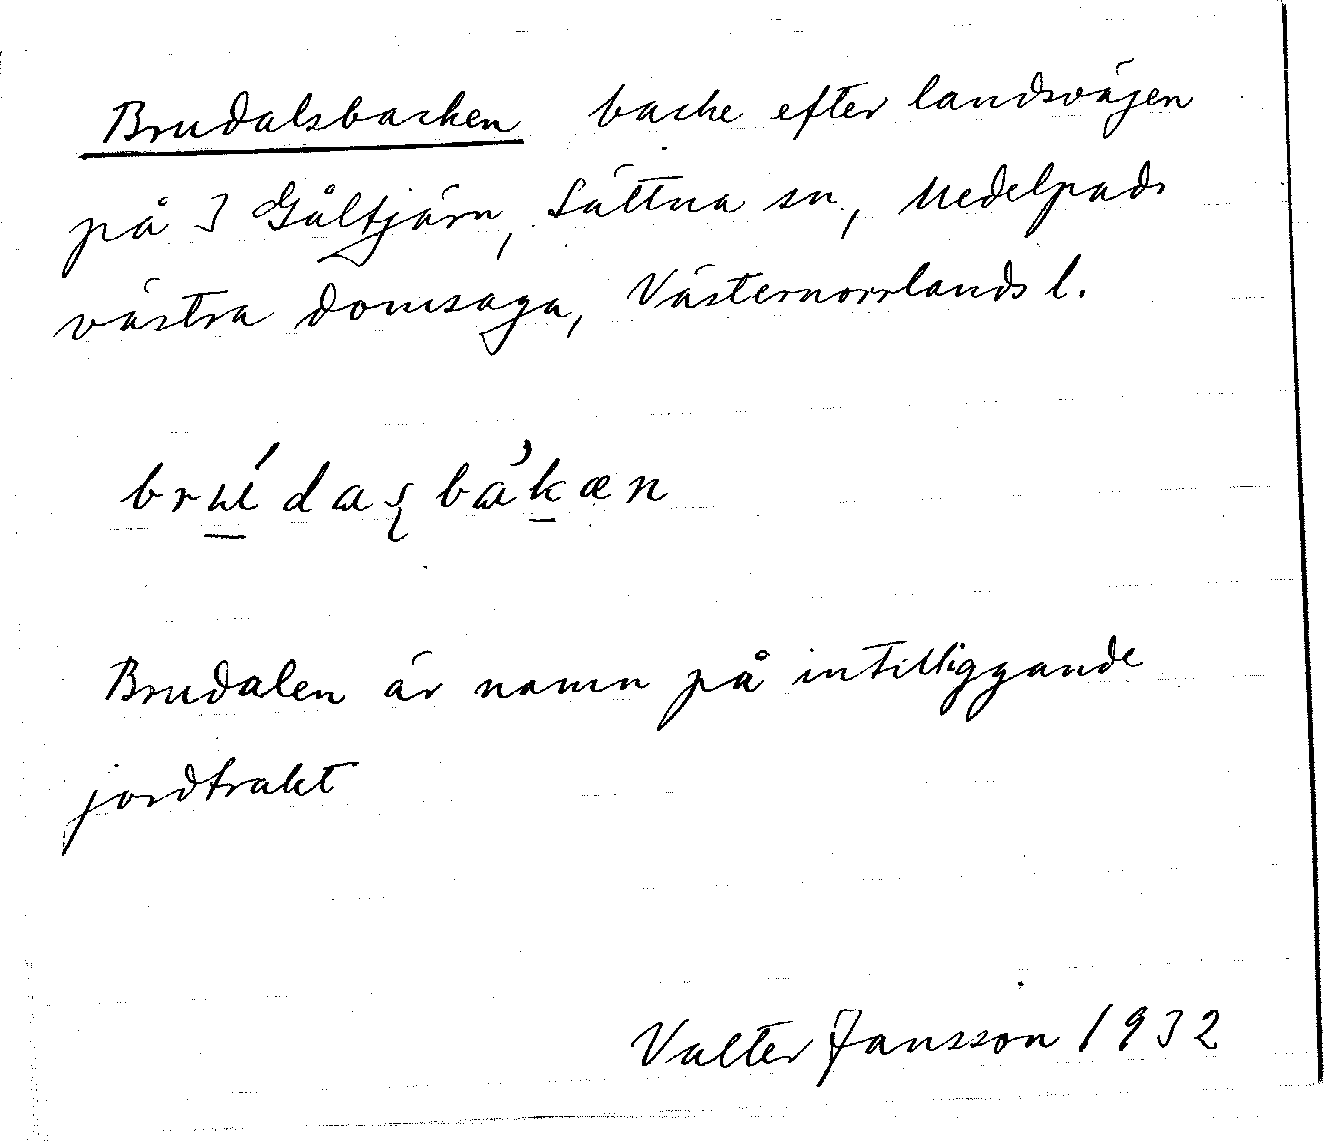 Brudalsbacken backe efter landsvägen
på 3 Gåltjärn, Sättna sn, Medelpads
västra domsaga, Västernorrlands l.
brʉ́daʂbàkæn
Brudalen är namn på intilliggande
jordtrakt
Valter Jansson 1932